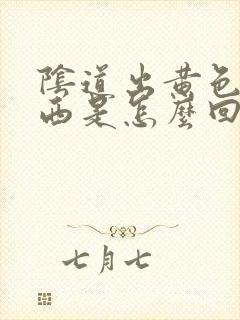 陰道出黄色
西是怎麼回
七月七